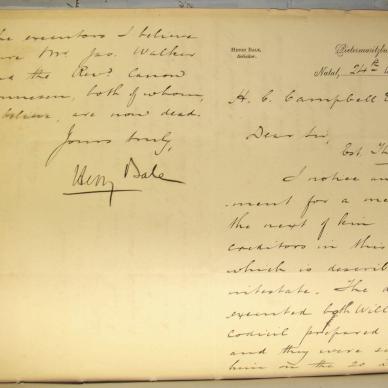 the executors I believe
Mr. Jas. Walker
the Revd. Canon
both of whom,
believe, are now dead.
Yours truly,
Henry Bale
Henry Bale,
Solicitor.
Pietermaritzbu
Natal, 24th
H. C. Campbell
Dear Sir,
Est.
I notice an
ment for a me
the next of kin
creditors in this
which is describ
intestate. The d
executed both Will
codicil prepared
and they were se
him on the 20